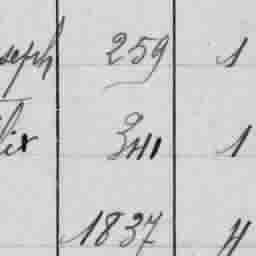 seph 259 1
lix 341 1
1837 4